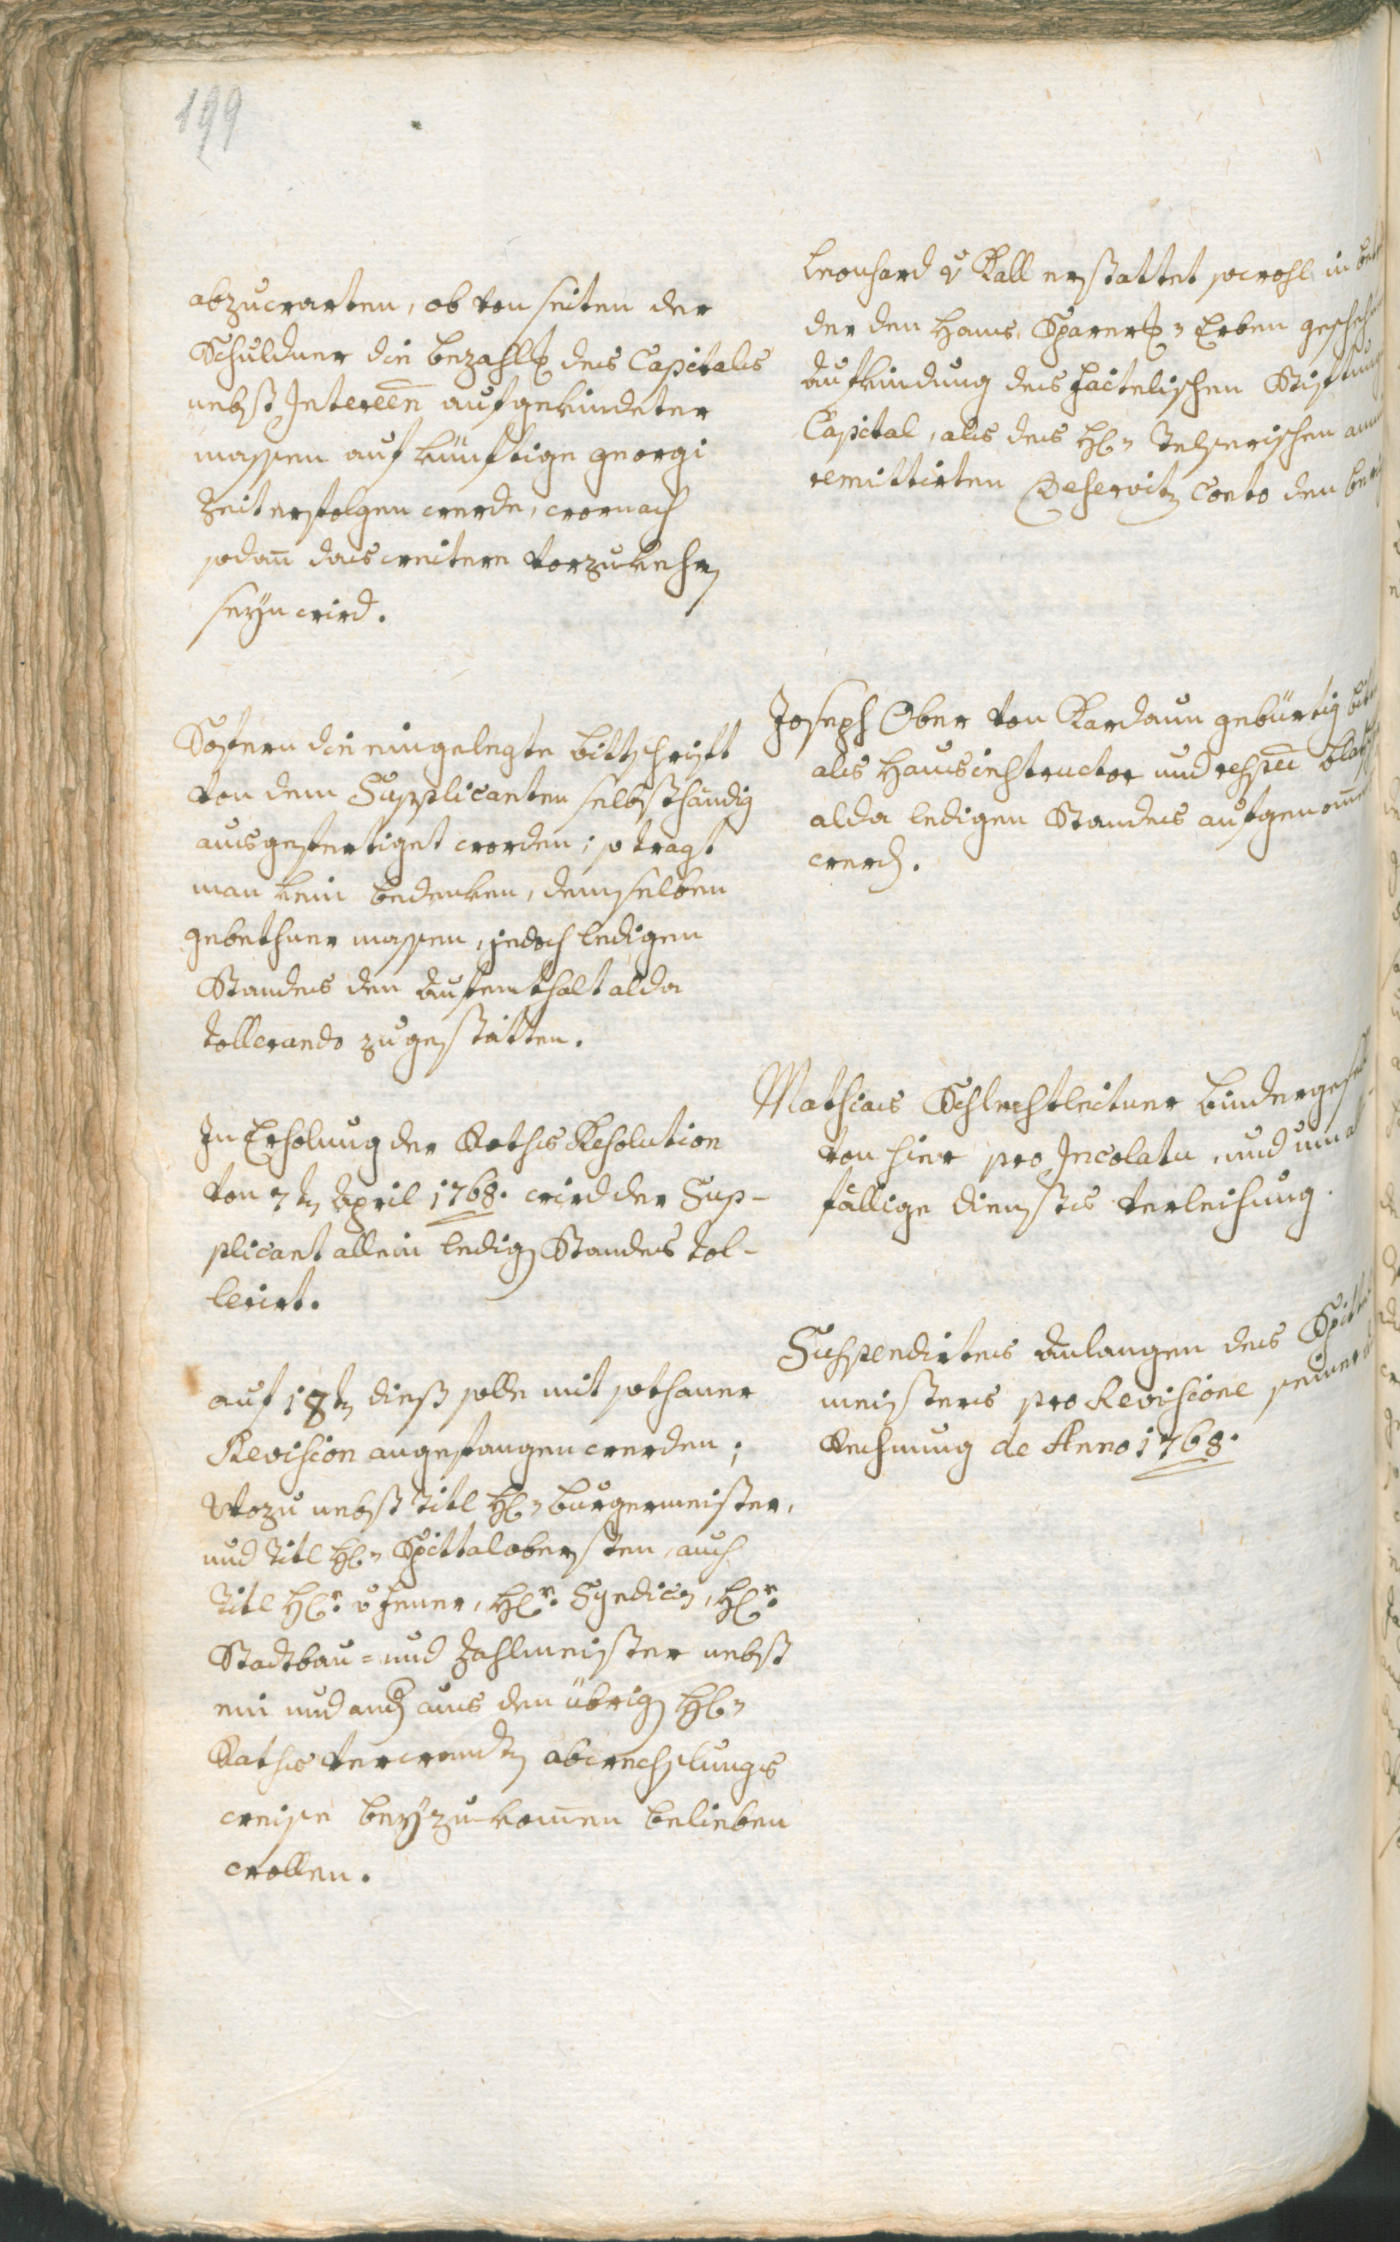 199
abzuwarten, ob von seiten der
Schuldner die bezahlg des Capitals
nebst Intereẽn aufgekindeter
massen auf künftige georgi
Zeit erfolgen werde, wornach
sodañ das weitere vorzukehrn
seyn wird.
Sofern die eingelegte bittschrift
von dem Supplicanten selbsthändig
ausgefertiget worden; so tragt
man kein bedenken, demselben
gebethner massen, jedoch ledigen
Standes den Aufenthalt alda
tollerando zugestatten.
In Erholung der Raths Resolution
von 7tn April 1768. wird der Sup-
plicant allein ledign Standes tol-
lerirt.
auf 18tn dieß solle mit sothaner
Revision angefangen werden;
Wozu nebst Titl H: burgermeister,
und Titl H: Spittalobersten, auch
Titl H:r v Jenner, H:r Syndico, H:r
Stadtbau- und Zahlmeister nebst
ein und andn aus den übrign H:
Raths verwandtn abwechslungs
weise beyzukom̃en belieben
wollen.
Leonhard v Kall erstattet sowohl in
der den Hans Sparerischen Erben
Aufkindung des Stiftungs
Capital, als des H:
remittirten Deservitn Conto den
Joseph Ober von Kardaun gebürtig
als Hausinstructor und
alda ledigen Standes aufgenom̃en
werdn.
Mathias Schlechtleitner bindergesell
von hier pro Incolatu, und um
fällige dienstes verleihung.
Suspendirtes Anlangen des Spittl
meisters pro Revisione seiner
Rechnung de Anno 1768.